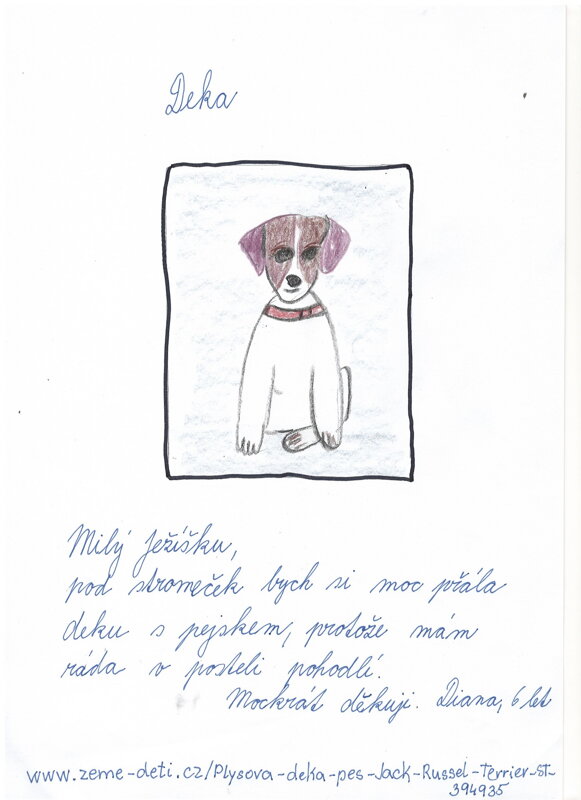 Deka
Milý Ježíšku,
pod stromeček bych si moc přála
deku s pejskem, protože mám
ráda v posteli pohodlí.
Mockrát děkuji. Diana, 6 let
www.zeme-deti.cz/Plysova-deka-pes-Jack-Russel-Terrier-st-
394935